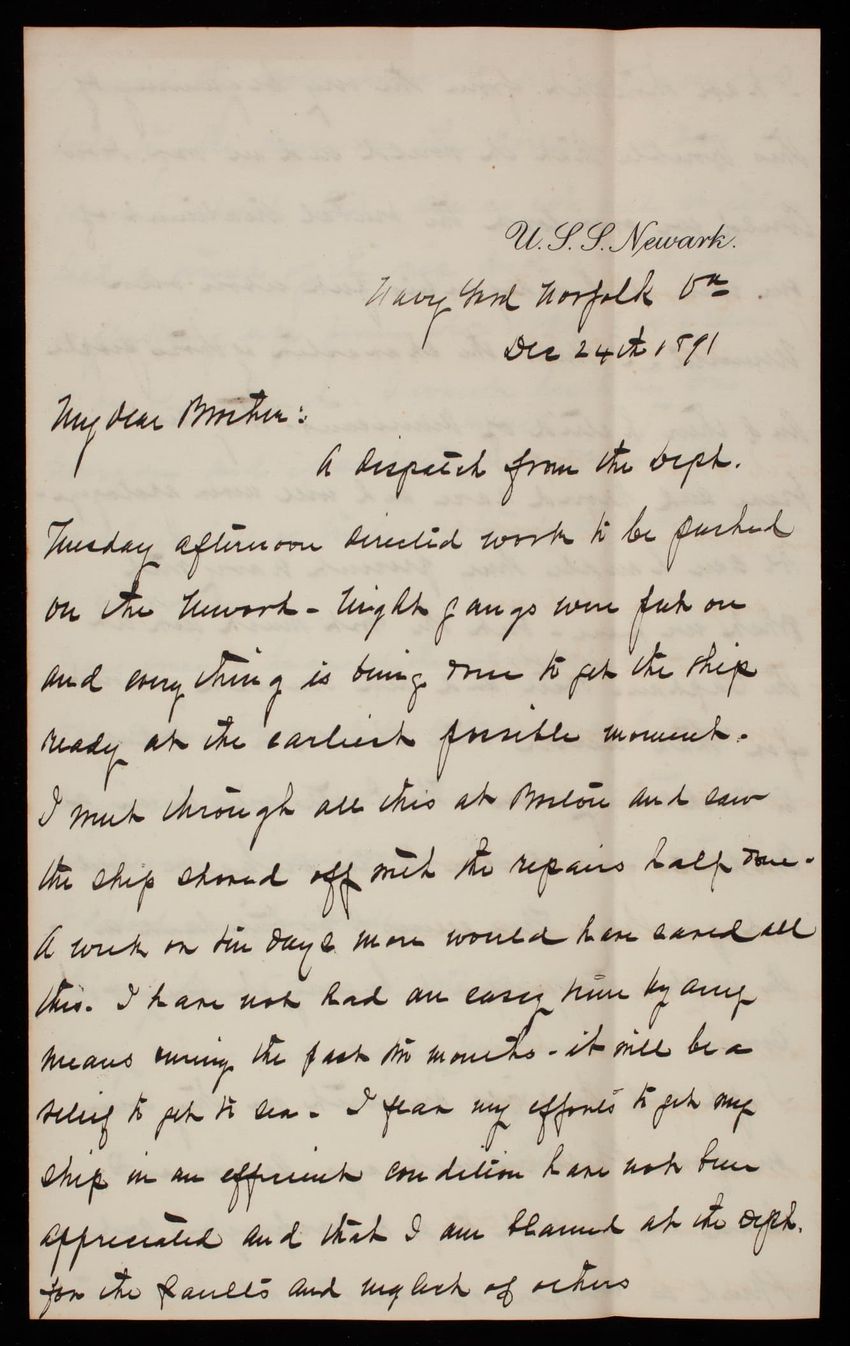 U.S.S. Newark.
Navy Yard Norfolk Va
Dec 24th 1891
My dear Brother:
A dispatch from the Dept.
Tuesday afternoon directed work to be pushed
on the Newark - Night gangs were put on
and every thing is being done to get the ship
ready at the earliest possible moment.
I went through all this at Boston and saw
the ship shoved off with the repairs half done.
A week or ten days more would have saved all
this. I have not had an easy time by any
means during the past two months - it will be a
relief to get to sea - I fear my efforts to get my
ship in an efficient condition have not been
appreciated and that I am blamed at the Dept.
for the faults and neglect of others